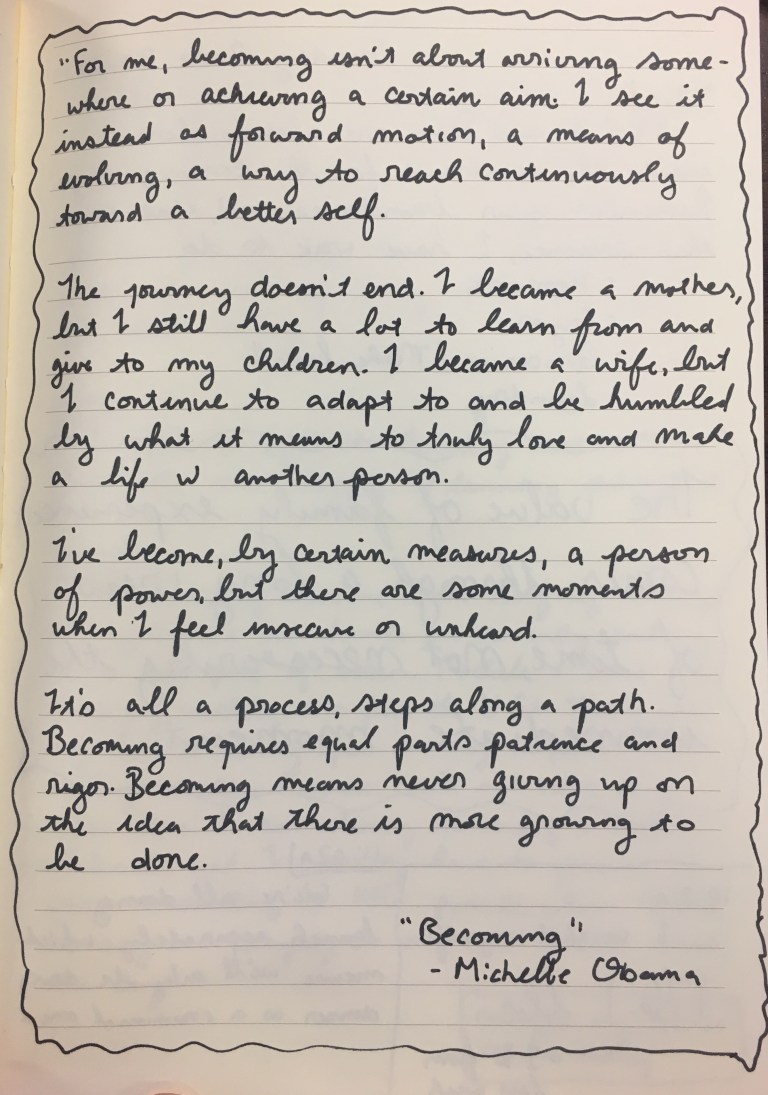 "For me, becoming isn't about arriving some-
where or achieving a certain aim. I see it
instead as forward motion, a means of
evolving, a way to reach continuously
toward a better self.
The journey doesn't end. I became a mother,
but I still have a lot to learn from and
give to my children. I became a wife, but
I continue to adapt to and be humbled
by what it means to truly love and make
a life w another person.
I've become, by certain measures, a person
of power, but there are some moments
when I feel insecure or unheard.
It's all a process, steps along a path.
Becoming requires equal parts patience and
rigor. Becoming means never giving up on
the idea that there is more growing to
be done.
"Becoming"
- Michelle Obama